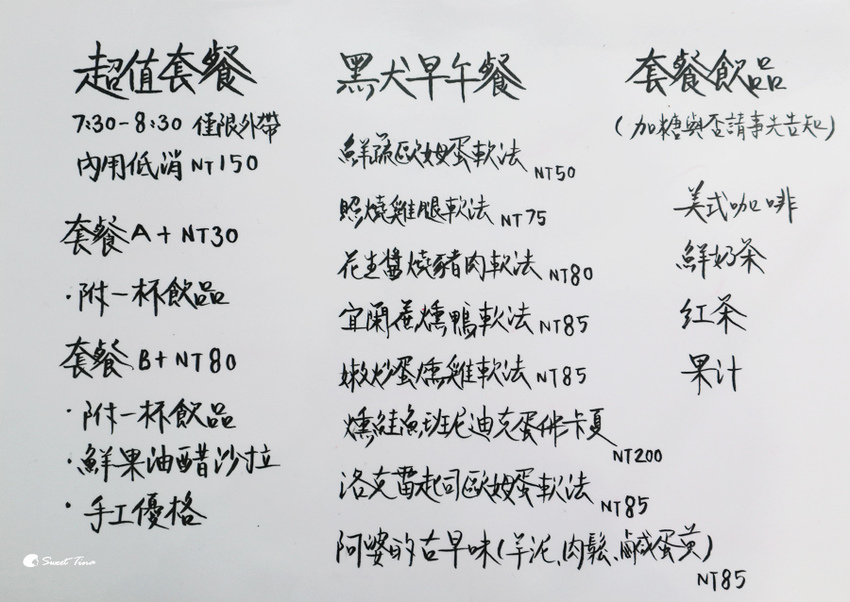 超值套餐
7:30-8:30 僅限外帶
內用低消 NT150
套餐A + NT30
·附一杯飲品
套餐B + NT80
·附一杯飲品
·鮮果油醋沙拉
·手工優格
黑犬早午餐
鮮蔬歐姆蛋軟法 NT50
照燒雞腿軟法 NT75
花生醬燒豬肉軟法 NT80
宜蘭蔗燻鴨軟法 NT85
嫩炒蛋燻雞軟法 NT85
燻鮭魚班尼迪克蛋佛卡夏
NT200
洛克雷起司歐姆蛋軟法 NT85
阿婆的古早味(芋泥、肉鬆、鹹蛋黃)
NT85
套餐飲品
(加糖與否請事先告知)
美式咖啡
鮮奶茶
紅茶
果汁
Sweet Tina